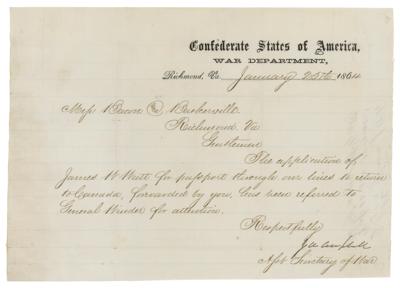 Confederate States of America,
WAR DEPARTMENT,
Richmond, Va. January 25th 1864
Mess Bacon & Baskerville
Richmond Va
Gentlemen
The application of
James W Watt for passport through our lines to return
to Canada, forwarded by you, has been referred to
General Winder for attention.
Respectfully
J A Campbell
Asst Secretary of War